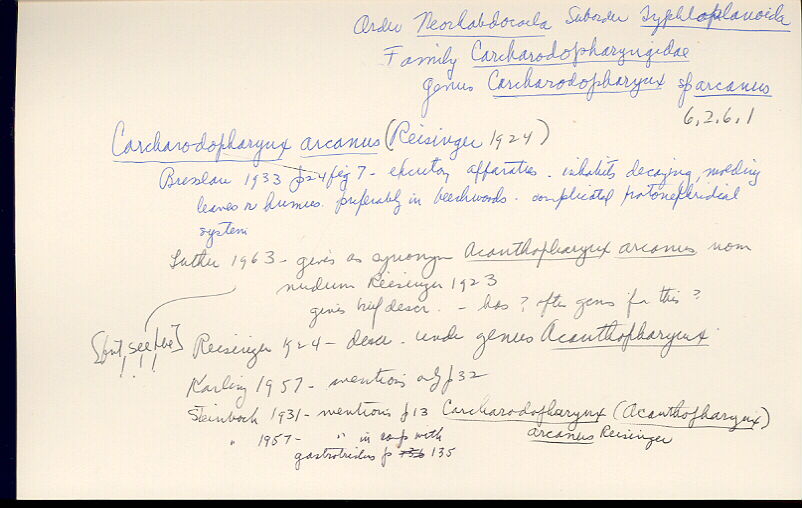 Order Neorhabdocoela Suborder Typhloplanoida
Family Carcharodopharyngidae
genus Carcharodopharynx sp arcanus
6,2,6,1
Carcharodopharynx arcanus (Reisinger 1924)
Bresslau 1933 p24 fig 7 - excretory apparatus - inhabits decaying, molding
leaves or humus. preferably in beechwoods - complicated protonephridial
system
Luther 1963 - gives as synonym Acanthopharynx arcanus nom
nudum Reisinger 1923
gives brief descr. - has ? after genus for this ?
[but see !!!] Reisinger 1924 - descr. under genus Acanthopharynx
Karling 1957 - mentions p32
Steinbock 1931 - mentions p13 Carcharodopharynx (Acanthopharynx)
arcanus Reisinger
" 1957 - " in comp with
gastrotrichs p 135